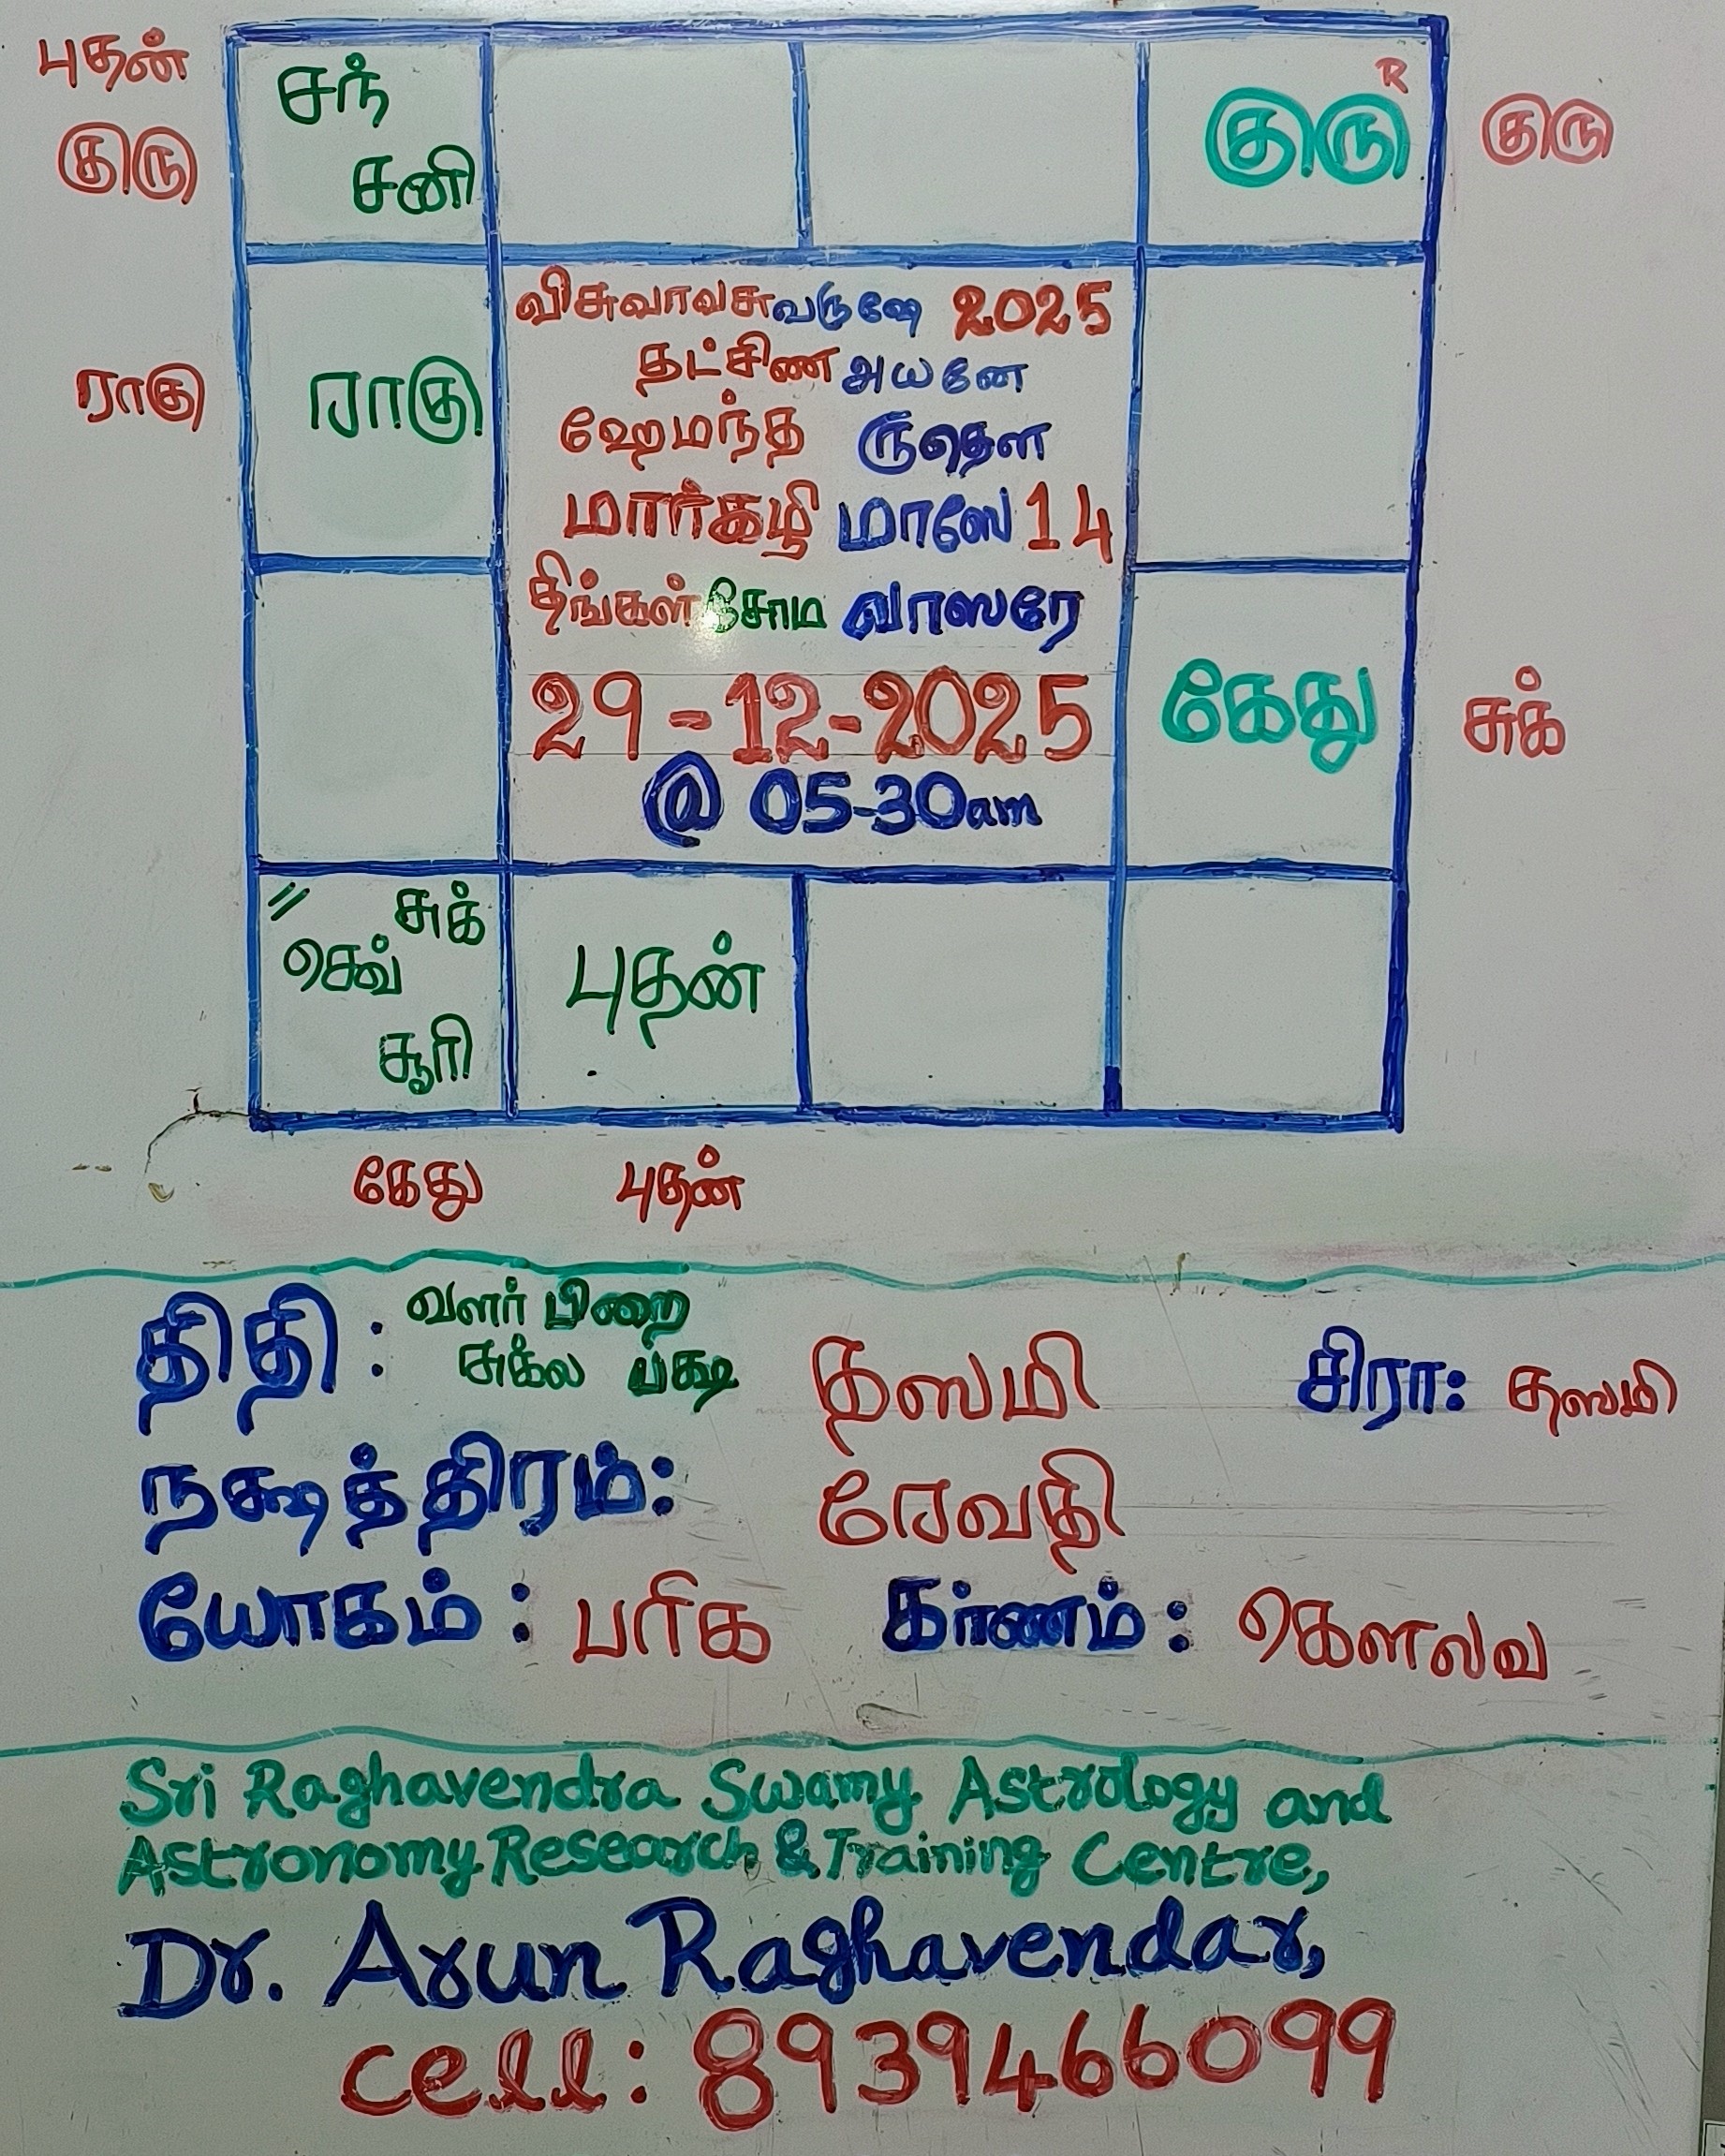 புதன்
குரு
சந்
சனி
R
குரு
குரு
ராகு
ராகு
விசுவாவசுவருஷே 2025
தட்சிண அயனே
ஹேமந்த ருதௌ
மார்கழி மாஸே 14
திங்கள் சோம வாஸரே
29-12-2025
@ 05-30am
கேது
சுக்
//
சுக்
செவ்
சூரி
புதன்
கேது
புதன்
திதி : வளர் பிறை
சுக்ல பக்ஷ
தஸமி
சிரா: தஸமி
நக்ஷத்திரம்: ரேவதி
யோகம் : பரிக கர்ணம் : கௌலவ
Sri Raghavendra Swamy Astrology and
Astronomy Research & Training Centre,
Dr. Arun Raghavendar,
cell: 8939466099